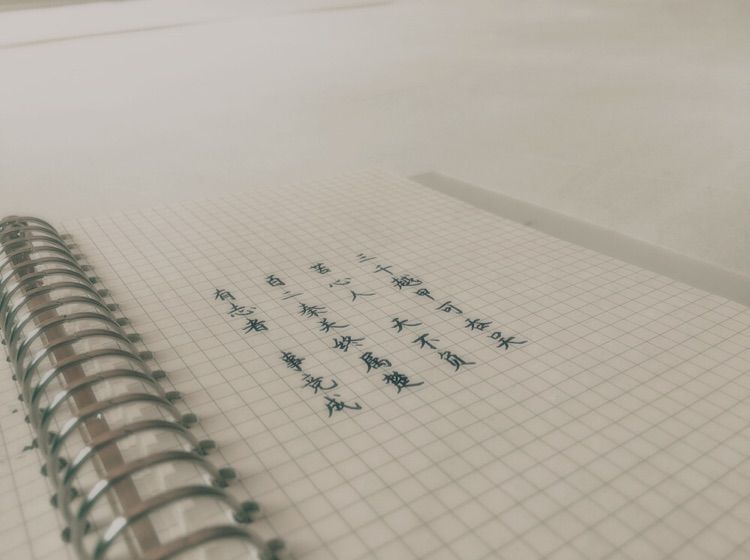 有志者 事竟成
百二秦关终属楚
苦心人 天不负
三千越甲可吞吴